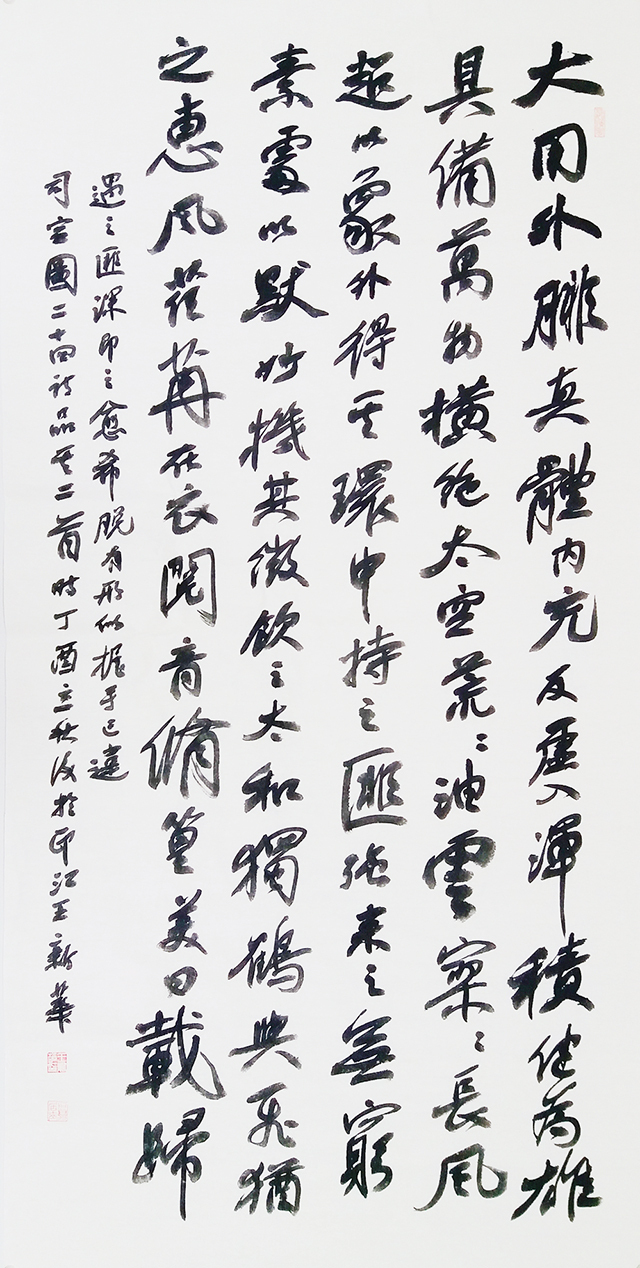 大用外腓真體內充反虛入渾積健為雄
具備萬物橫絕太空荒〻油雲寥〻長風
超以象外得其環中持之匪強來之無窮
素處以默妙機其微飲之太和獨鶴與飛猶
之惠風荏苒在衣閱音脩篁美曰載歸
遇之匪深即之愈希脫有形似握手已違
司空圖二十四詩品其二首時丁酉立秋後於印江王新華